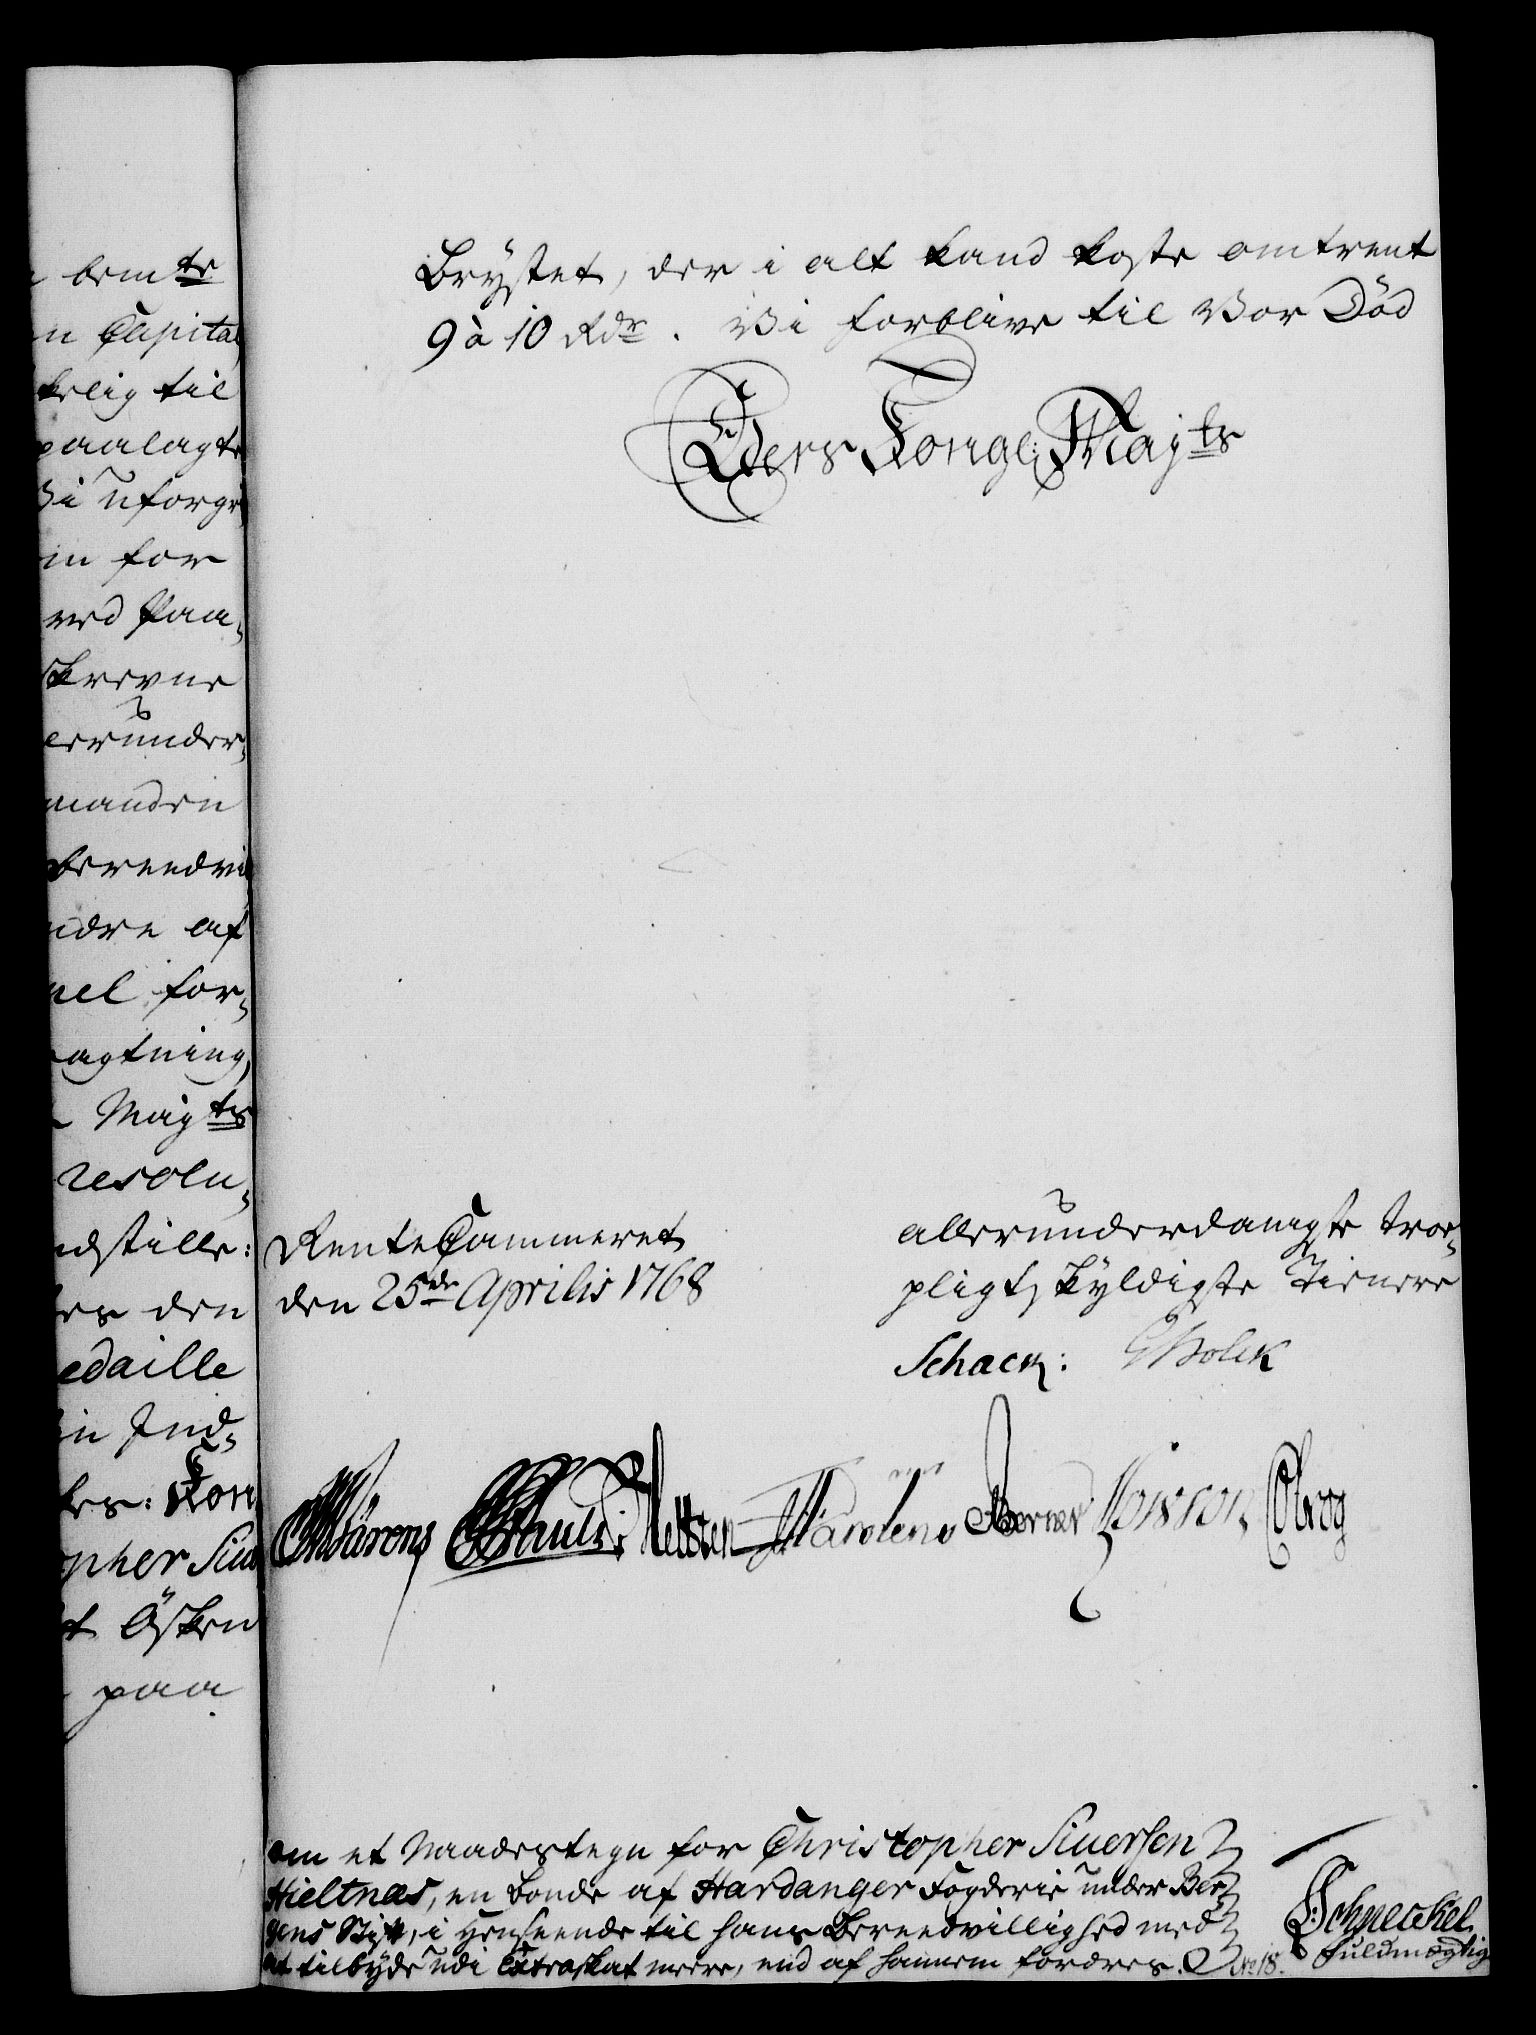 bemte
n Capital
kelig til
paalagte
Vi uforgri
in for
ved Paa-
skrevne
lerunder-
manden
bereedvil
ndre af
nel for-
agtning,
Mayts
resolu-
ndstille:
es den
edaille
in Ind-
kes: Kon
opher Siu
t Ösken
paa
Brÿstet, der i alt kand koste omtrent
9 à 10 Rdr. Vi forblive til Vor Död
Eders Kongl: Mayts
RenteCammeret
den 25de Aprilis 1768
allerunderdanigste troe-
pligtskyldigste Tienere
Schack: GHolck
Berner
om et Naadestegn for Christopher Siuersen
Hieltnæs, en Bonde af Hardanger Fogderie under Ber-
gens Stift, i Henseende til hans Bereedvillighed med
at tilbÿde udi Extraskat meere, end af hannem fordres. No 18.
Schneckel
Fuldmægtig